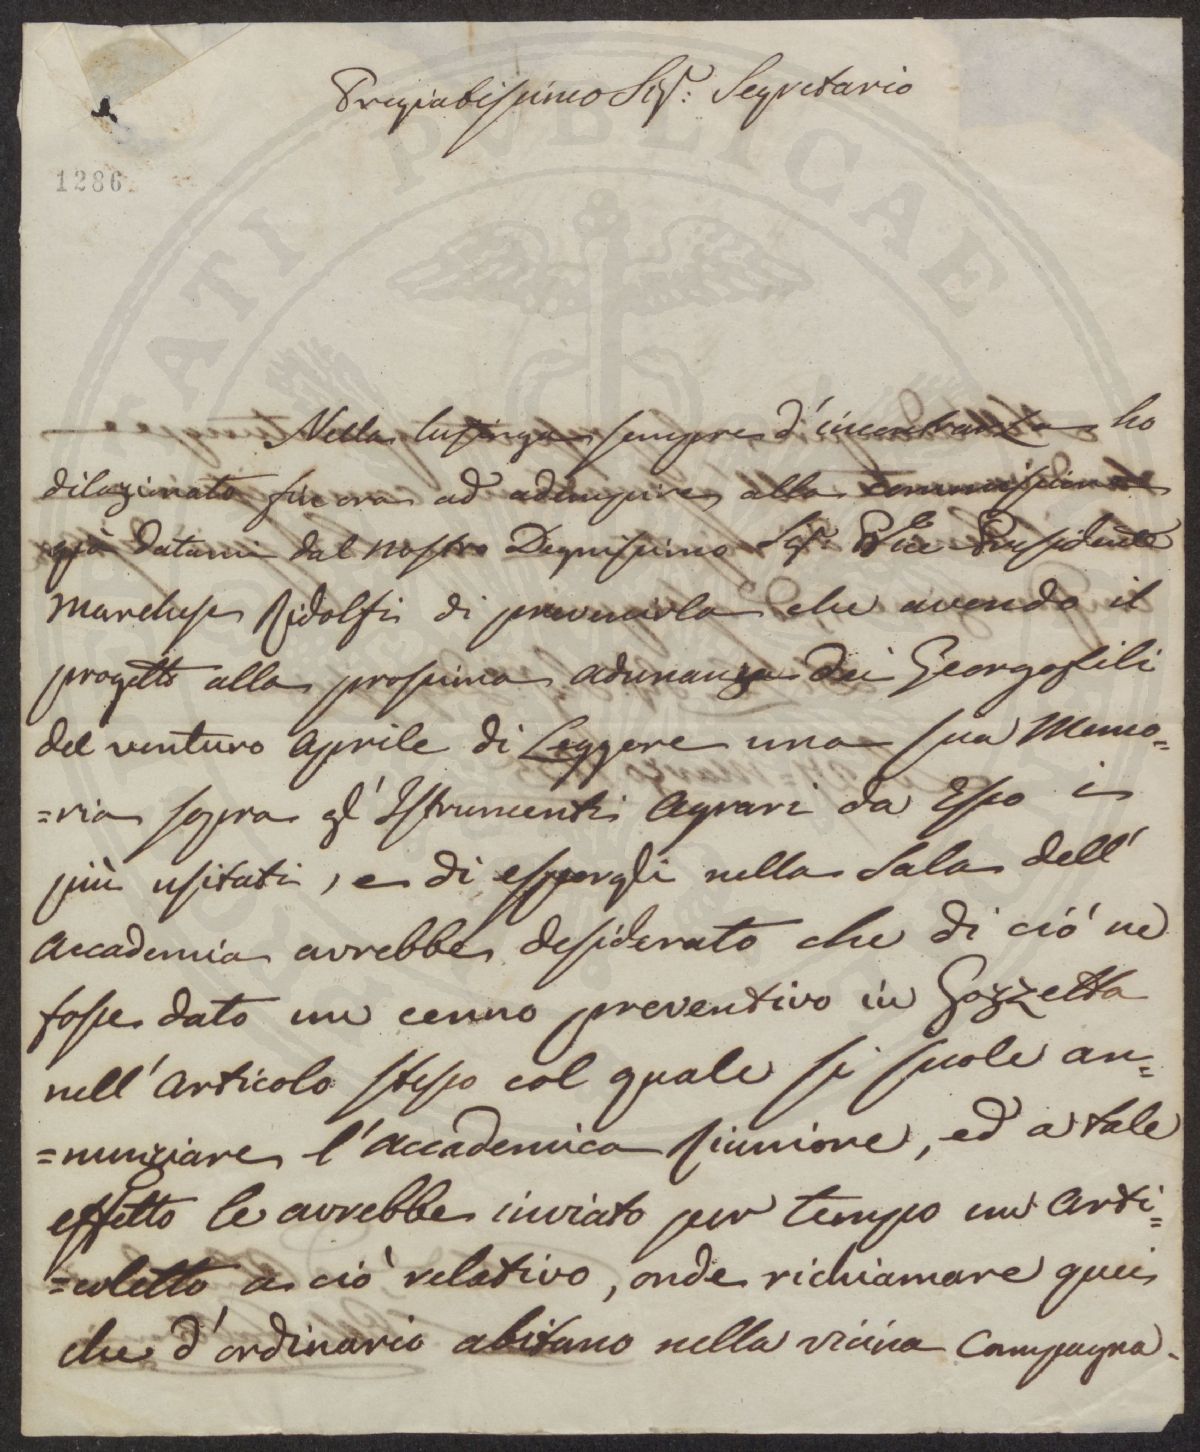 Pregiabissimo Sigr: Segretario
1286
Nella lusinga sempre d'incontrarla ho
dilazionato fin ora ad adempire alla commissione
già datami dal nostro Degnissimo Sigr Vice Presidente
Marchese Ridolfi di prevenirla che avendo il
progetto alla prossima adunanza dei Georgofili
del venturo Aprile di Leggere una sua Memo=
=ria sopra gl'Istrumenti Agrari da Esso i
più usitati, e di esporgli nella Sala dell'
Accademia avrebbe desiderato che di ciò ne
fosse dato un cenno preventivo in Gazzetta
nell'Articolo stesso col quale si suole an=
=nunziare l'Accademica Riunione, ed a tale
effetto le avrebbe inviato per tempo un Arti=
=coletto a ciò relativo, onde richiamare quei
che d'ordinario abitano nella vicina Campagna.